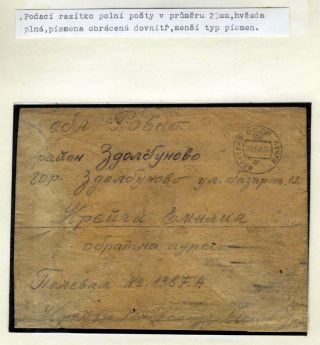 .Podací razítko polní pošty v průměru 25mm,hvězda
plná,písmena obrácená dovnitř,menší typ písmen.
обл Ровно
район Здолбуново
гор. Здолбуново ул. Базарна 12
Крейчи Емилия
обратна адреса
Полевая №. 1387.А